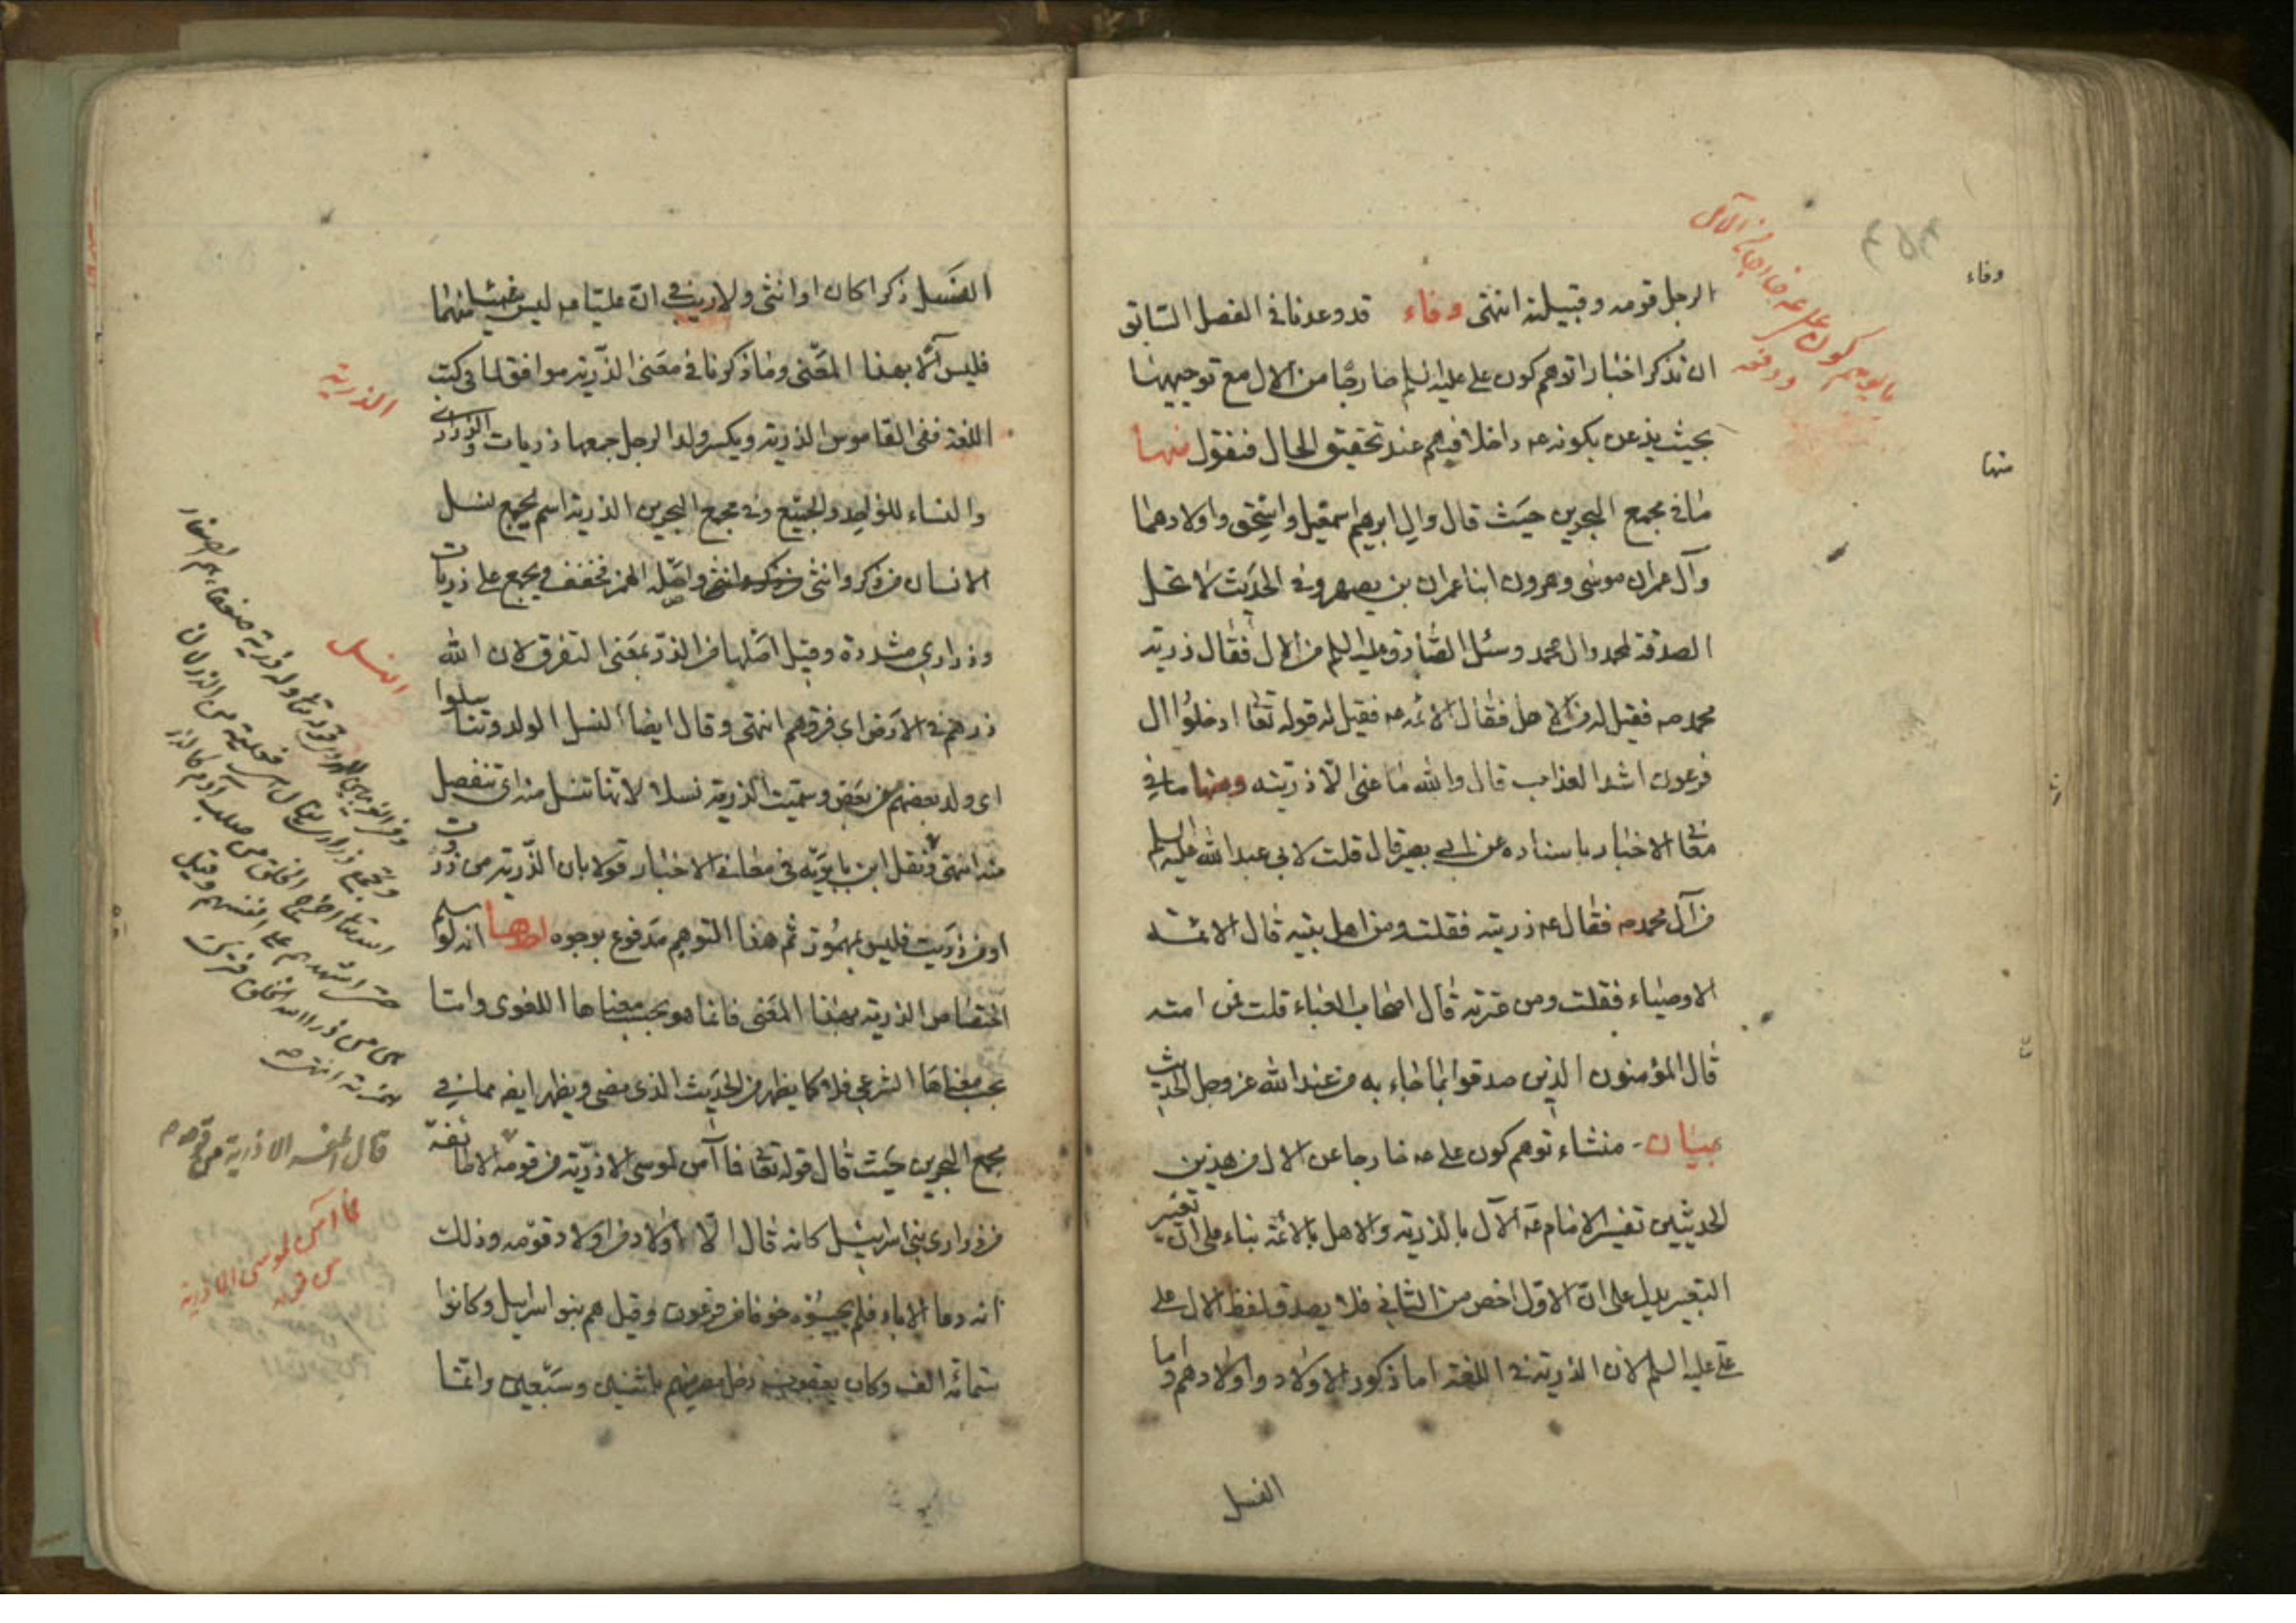 الرجل قومه وقبيلته انتهى وفاء قد وعدنا في الفصل السابق
ان نذكر اخبارا توهم كون علي عليه السلم خارجا من الال مع توجيهها
بحيث يذعن بكونه عه داخلا فيهم عند تحقيق الحال فنقول منها
ما في مجمع البحرين حيث قال وال ابرهيم اسمعيل واسحق واولادهما
وآل عمران موسى وهرون ابنا عمران بن يصهر وفي الحديث لا تحل
الصدقة لمحمد وال محمد وسئل الصادق عليه السلم من الال فقال ذرية
محمد صه فقيل له من الاهل فقال الائمة عه فقيل له قوله تعا ادخلوا ال
فرعون اشد العذاب قال والله ما عنى الا ذريته ومنها ما في
معاني الاخبار باسناده عن ابي بصير قال قلت لابي عبد الله عليه السلم
من آل محمد صه فقال عه ذريته فقلت ومن اهل بيته قال الائمة
الاوصياء فقلت ومن عترته قال اصحاب العباء قلت فمن امته
قال المؤمنون الذين صدقوا بما جاء به من عند الله عز وجل الحديث
بيان منشاء توهم كون علي عه خارجا عن الال من هذين
الحديثين تفسير الامام عه الآل بالذرية والاهل بالائمة بناء على ان تغيير
التعبير يدل على ان الاول اخص من الثاني فلا يصدق لفظ الال على
علي عليه السلم لان الذرية في اللغة اما ذكور الاولاد واولادهم واما
النسل
وفاء
منها
النسل ذكرا كان او انثى ولا ريب في ان عليا عه ليس منهما
فليس آلا بهذا المعنى وما ذكرنا في معنى الذرية موافق لما في كتب
اللغة ففي القاموس الذرية ويكسر ولد الرجل جمعها ذريات والذراري
والنساء للواحد والجميع وفي مجمع البحرين الذرية اسم يجمع نسل
الانسان من ذكر وانثى واصله الهمز فخفف ويجمع على ذريات
وذراري مشددة وقيل اصلها من الذر بمعنى التفرق لان الله
ذرهم في الارض اي فرقهم انتهى وقال ايضا النسل الولد وتناسلوا
اي ولد بعضهم من بعض وسميت الذرية نسلا لانها تنسل منه اي تنفصل
منه انتهى ونقل ابن بابويه في معاني الاخبار قولا بان الذرية من ذروت
او من ذريت فليس بمهموز ثم هذا التوهم مدفوع بوجوه احدها انه لو سلم
اختصاص الذرية بهذا المعنى فانما هو بحسب معناها اللغوي واما
بحسب معناها الشرعي فلا كما يظهر من الحديث الذي مضى ويظهر ايضه مما في
مجمع البحرين حيث قال قوله تعا فما آمن لموسى الا ذرية من قومه الا طائفة
من ذراري بني اسرائيل كانه قال الا اولاد من اولاد قومه وذلك
انه دعا الاباء فلم يجيبوه خوفا من فرعون وقيل هم بنو اسرائيل وكانوا
ستمائة الف وكان يعقوب دخل مصر منهم باثنين وسبعين وانما
الذرية
النسل
فما آمن لموسى الا ذرية
من قومه